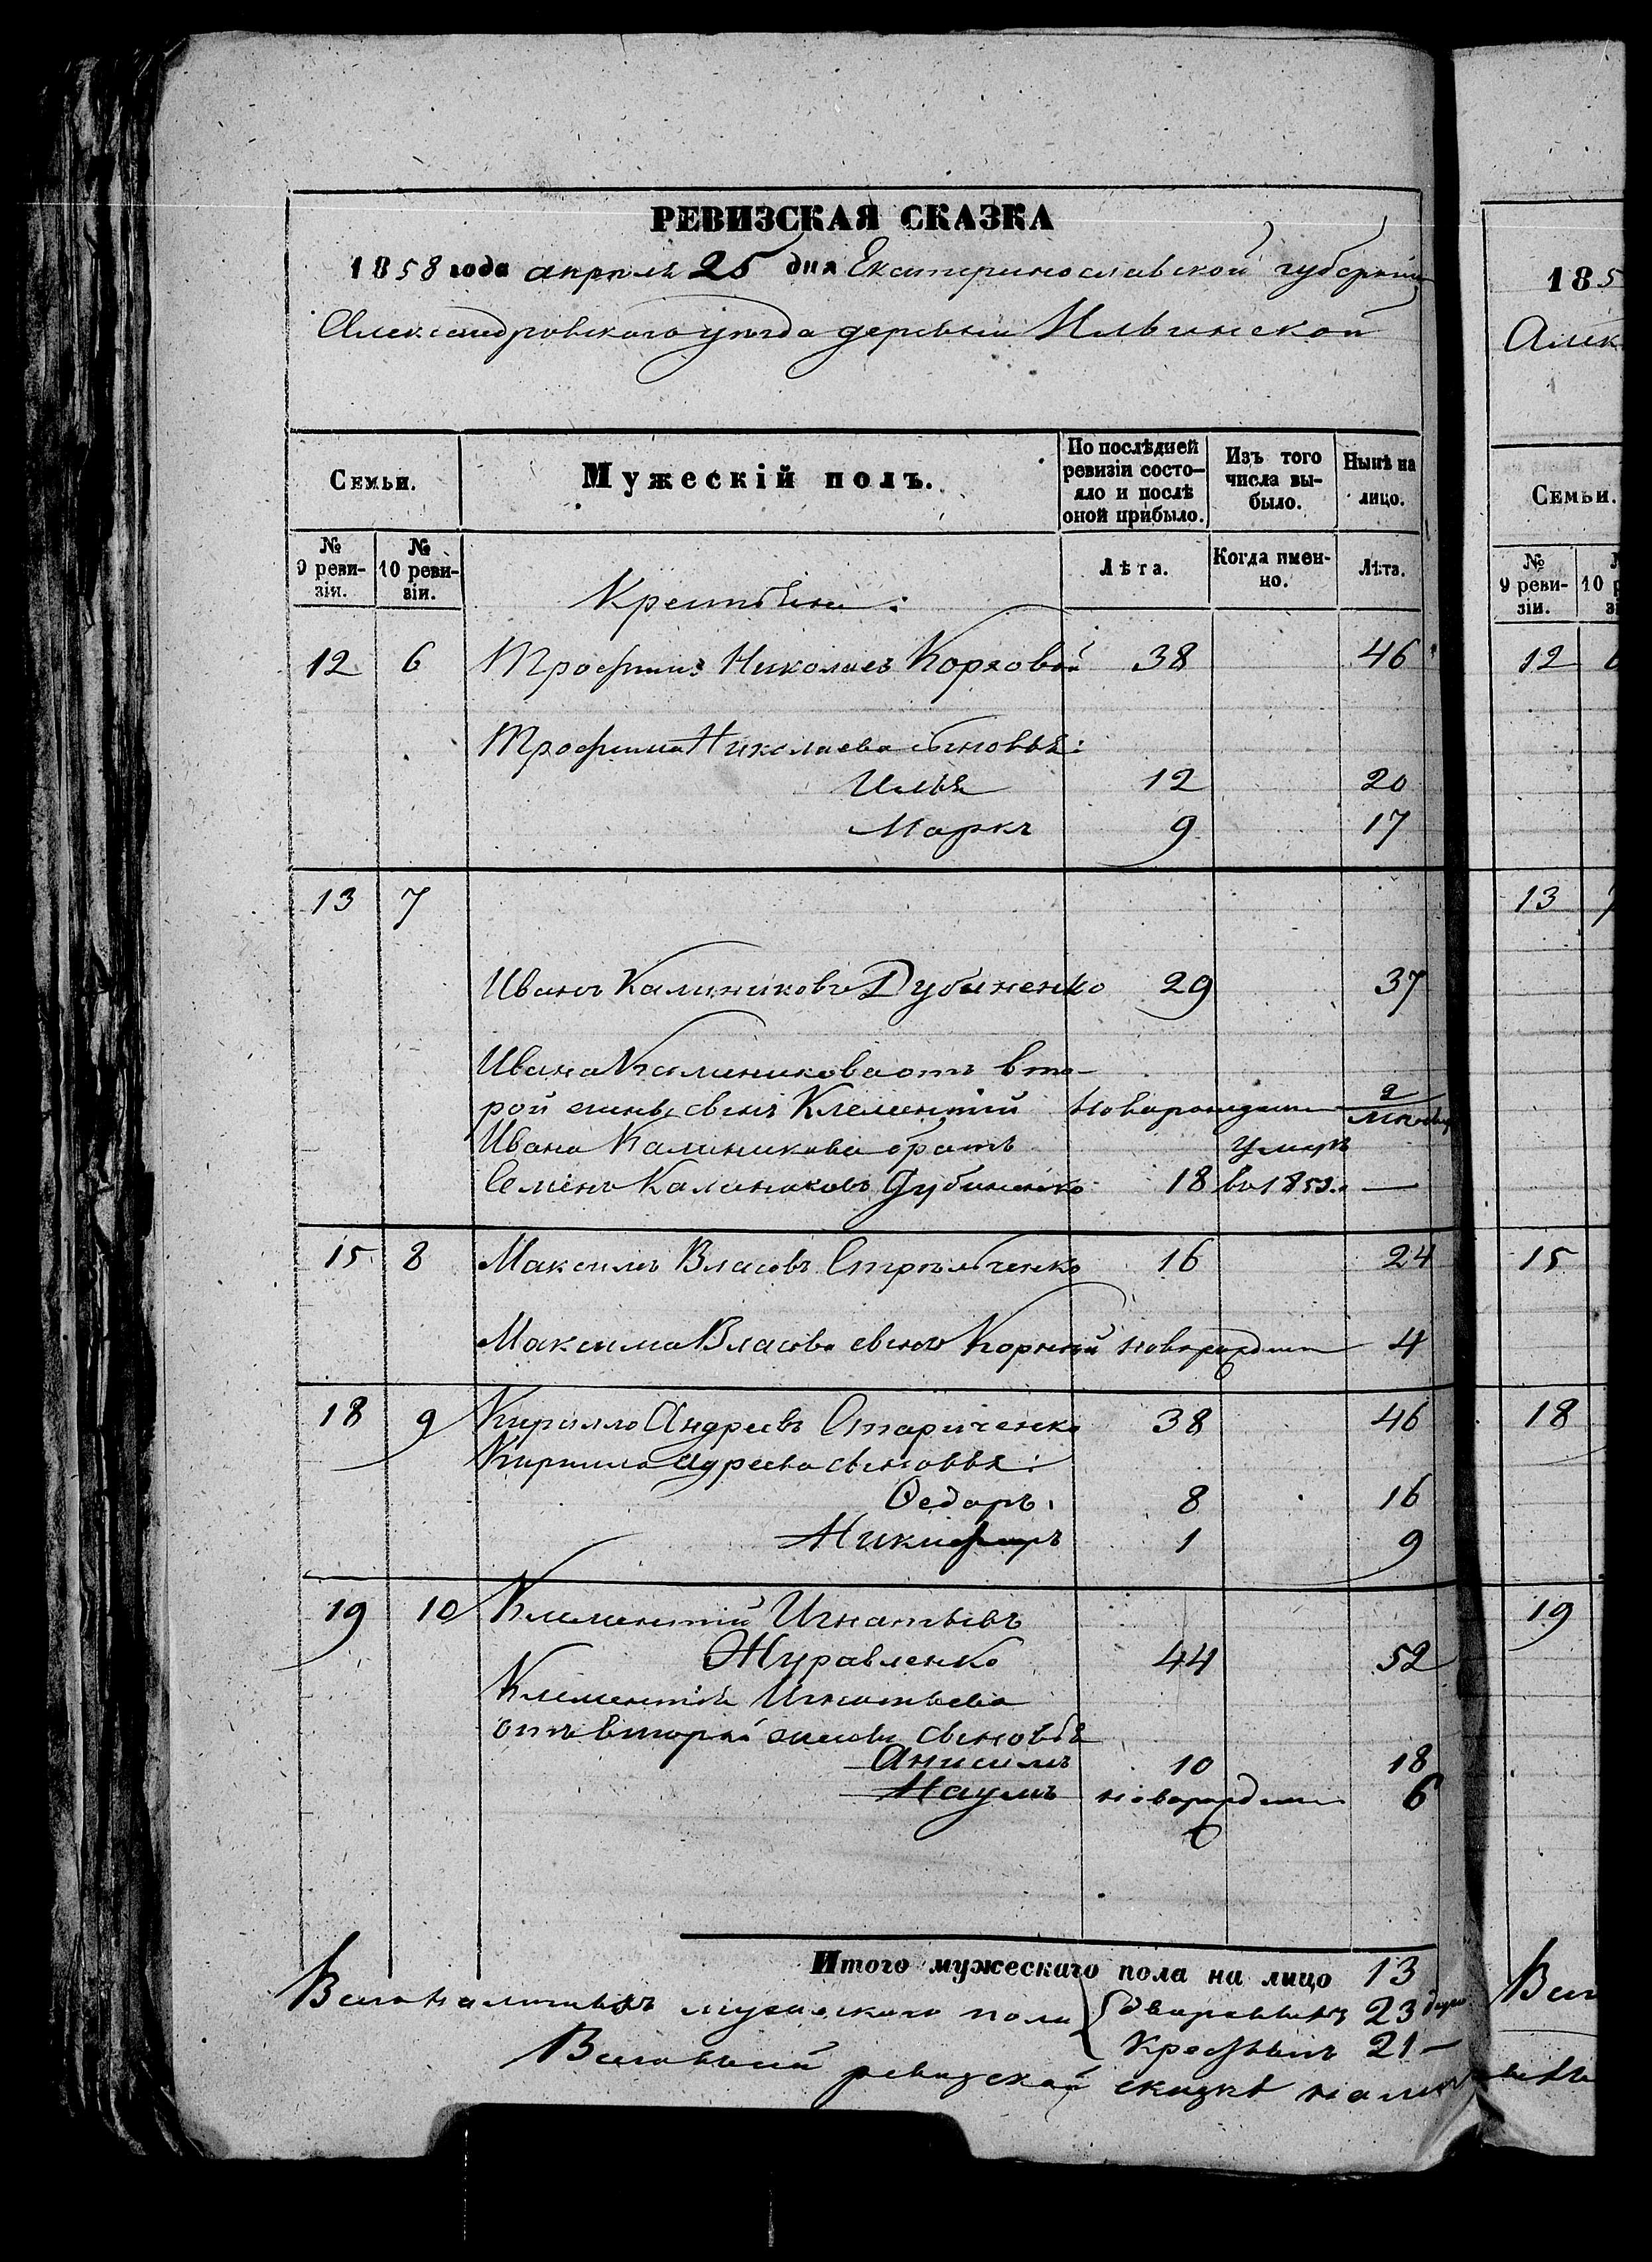 РЕВИЗСКАЯ СКАЗКА
1858 года апреля 25 дня Екатеринославской губернии
Александровского уезда деревни Ильинской
Семьи.
Мужескій полъ.
По послѣдней ревизіи состояло и послѣ оной прибыло.
Изъ того числа выбыло.
Нынѣ на лицо.
№ 9 ревизіи.
№ 10 ревизіи.
Лѣта.
Когда именно.
Лѣта.
Крестьяне:
12 6 Трофимъ Николаевъ 38 46
Трофима Николаева сыновья:
Илья 12 20
Маркъ 9 17
13 7
Иванъ Калиниковъ Дубиненко 29 37
Ивана Калиникова отъ вто-
рой жены сынъ Клементій новорожденъ
Ивана Калиникова братъ умеръ
Семенъ Калиниковъ Дубиненко 18 —
15 8 Максимъ Власовъ Стрѣльченко 16 24
Максима Власова сынъ Корней новорожденъ 4
18 9 Кирилло Андреевъ Стариченко 38 46
Кирилла Адреева сыновья:
Ѳедоръ 8 16
Никифоръ 1 9
19 10 Клементій Игнатьевъ
Журавленко 44 52
Клементія Игнатьева
отъ второй жены сыновья
Анисимъ 10 18
Наумъ новорожденъ 6
Итого мужескаго пола на лицо 13
Всего наличныхъ мужеского пола дворовыхъ 23 душ
крестьянъ 21 —
ревизской сказкѣ
185
Алек
Семьи.
№ 9 ревизіи.
10
12
13
15
18
19